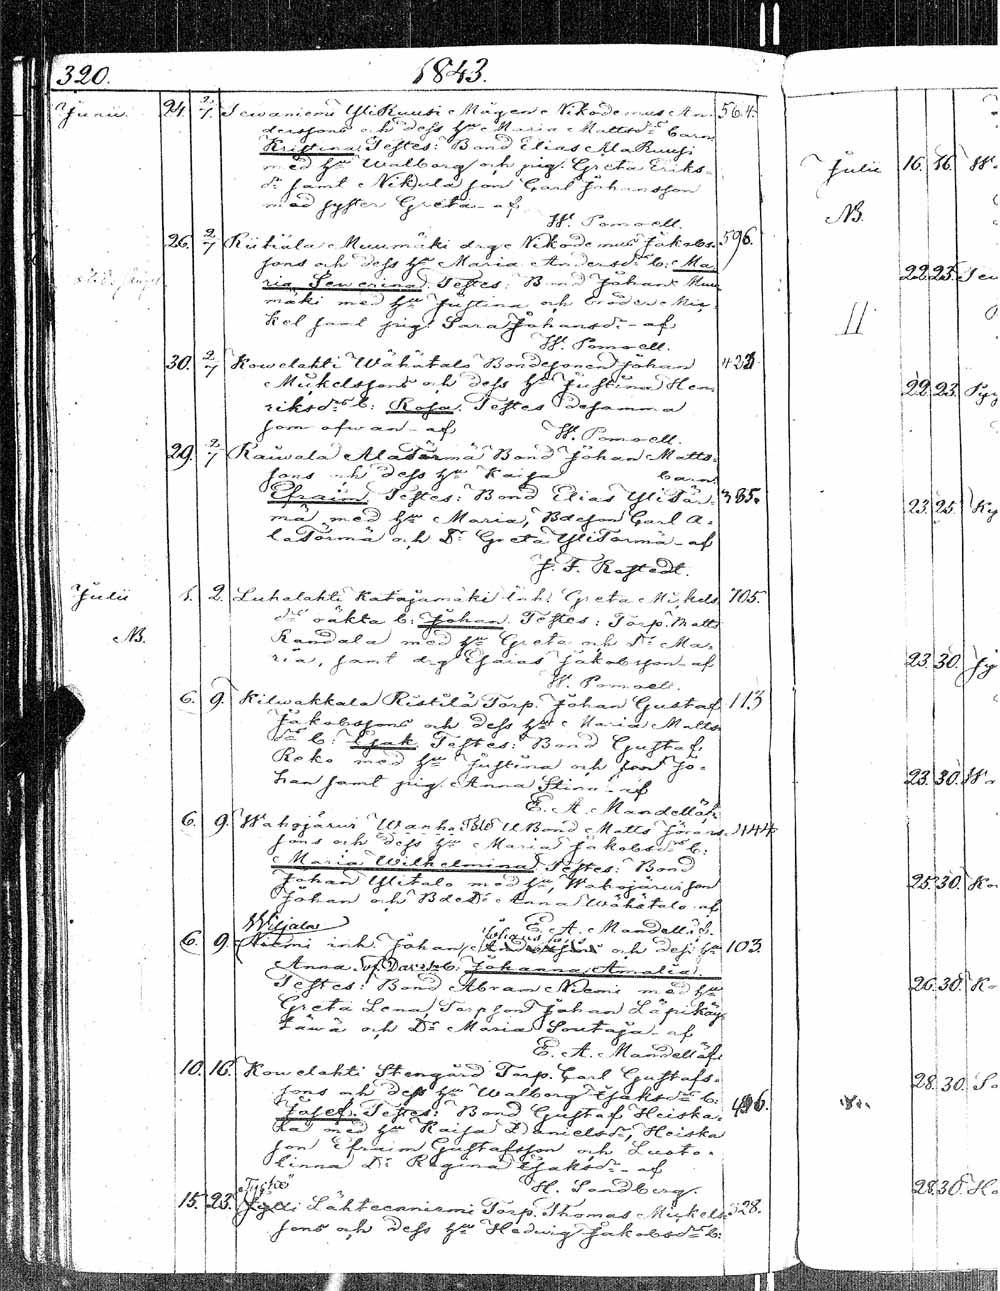 320. 1843.
Junii. 24. 2/7 Sewaniemi YliRuusi Mågen Nikodemus An- 564.
derssons och dess hu Maria Mattsdr barn
Kristina. Testes: Bond Elias AlaRuusi
med hu Walborg och pig. Greta Eriks-
dr samt Nikula son Carl Johansson
med syster Greta - af
W. Pomoell.
26. 2/7 Riitiala Muumäki drg Nikodemus Jakobs- 596.
sons och dess hu Maria Andersdr b: Ma-
ria Sewerina. Testes: Bond Johan Muu-
mäki med hu Justina och broder Mic-
kel samt pig. Sara Johansdr - af
W. Pomoell.
30. 2/7 Kowelahti Wähätalo Bondesonen Johan
Mickelssons och dess hu Justina Hen-
riksdrs b: Rosa. Testes desamma
som ofwan - af
W. Pomoell.
29. 2/7 Räiwälä AlaTörmä Bond Johan Matts-
sons och dess hu Kaisa barn
Efraim. Testes: Bond Elias YliTör- 385.
mä med hu Maria, Bdeson Carl A-
laTörmä och Dr Greta YliTörmä - af
J. F. Rostedt.
Julii 1. 2. Luhalahti Katajamäki inh. Greta Mickels- 705.
NB. drs oäkta b: Johan. Testes: Torp. Matts
Randala med hu Greta och Dr Ma-
ria, samt drg Esaias Jakobsson - af
W. Pomoell.
6. 9. Kilwakkala Ristilä Torp. Johan Gustaf 113
Jakobssons och dess hu Maria Matts-
drs b: Isak. Testes: Bond Gustaf
Reko med hu Justina och son Jo-
han samt pig. Anna Stina - af
E. A. Mandellöf.
6. 9. Wahojärwi WanhaTalo UBond Matts Görans- 144
sons och dess hu Maria Jakobsdrs b:
Maria Wilhelmina. Testes: Bond
Johan Ylitalo med hu, Wahojärwi son
Johan och BdeDr Anna Wähätalo - af
E. A. Mandellöf.
Wiljala
6. 9 Niemi inh. Johan och dess hu 103.
Anna b: Johanna Amalia.
Testes: Bond Abram Niemi med hu
Greta Lena, Torpson Johan Läpikäy-
täwä och Dr Maria Soutaja - af
E. A. Mandellöf.
10. 16. Kowelahti Stengård Torp. Carl Gustafs-
sons och dess hu Walborg Isaksdrs b:
Josef. Testes: Bond Gustaf Heiska-
la med hu Kaisa Danielsdr, Heiska
son Efraim Gustafsson och Luoto-
linna Dr Regina Isaksdr - af
H. Sandberg.
15. 23. Jylli Lähteenniemi Torp. Thomas Mickels- 328.
sons och dess hu Hedwig Jakobsdrs b:
Julii 16. 16.
NB.
22. 23.
22. 23.
23. 25. Ky
23. 30.
23. 30.
25. 30. Ko
26. 30. Ko
28. 30.
28. 30. Ho